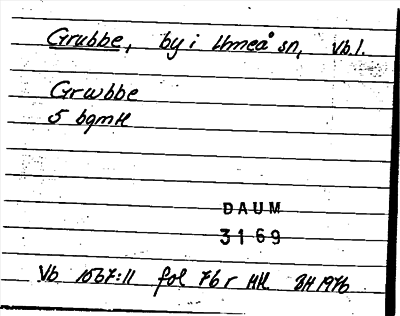 Grubbe, by i Umeå sn, Vb.l.
Grwbbe
5 bgmH
DAUM
3169
Vb 1567:11 fol 76 r HH BH 1976